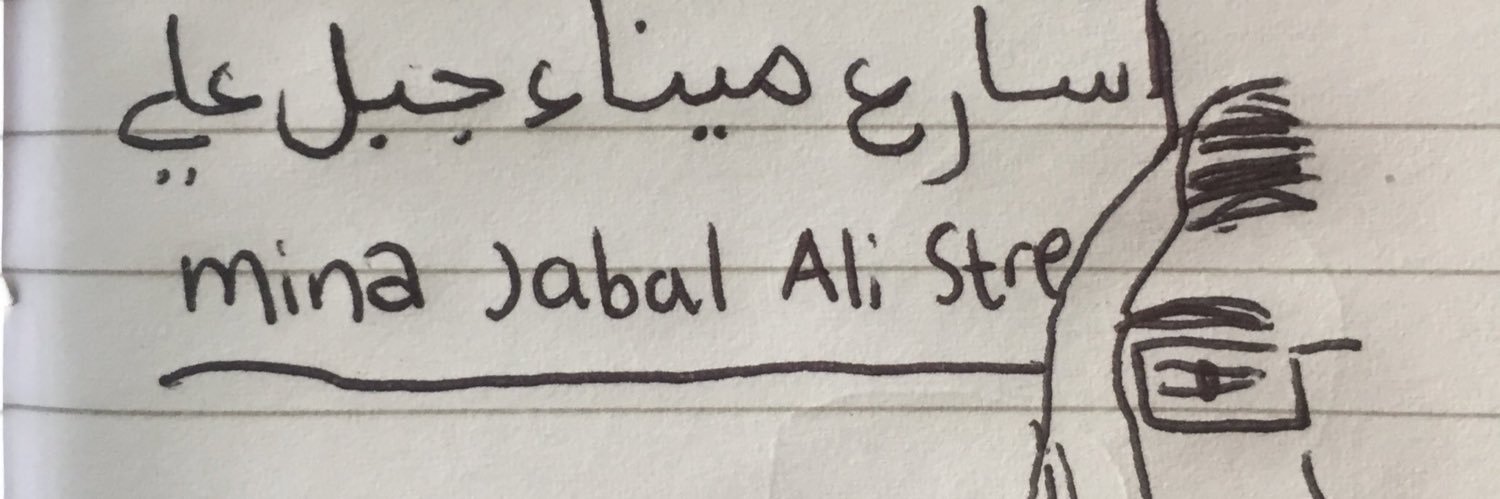 سارع ميناء جبل علي
mina Jabal Ali Stre